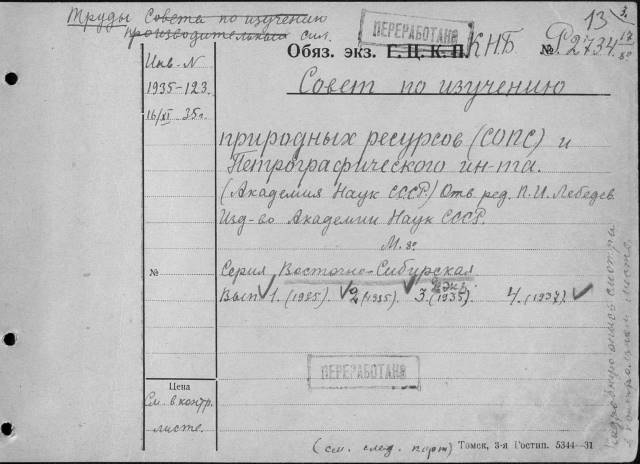 Труды Совета по изучению
производительных сил.
ПЕРЕРАБОТАНО
13
Обяз. экз. Г.Ц.К.П. КНБ № Р2734
Инв. N
1935-123.
16/XI 35г.
Совет по изучению
природных ресурсов (СОПС) и
Петрографического ин-та.
(Академия Наук СССР.) Отв. ред. П.И. Лебедев.
Изд-во Академии Наук СССР.
М. 8°
№ Серия Восточно-Сибирская
2 экз.
Вып. 1. (1935). 2 (1935). 3. (1935). 4. (1937)
ПЕРЕРАБОТАНО
Цена
См. в контр.
листе.
(см. след. карт) Томск, 3-я Гостип. 5344—31
смотри
листе.